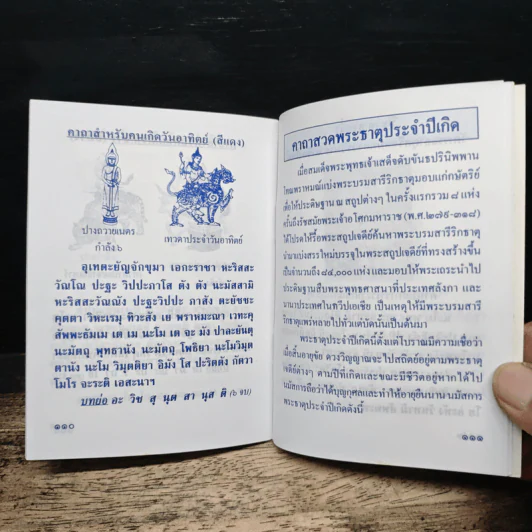 คาถาสำหรับคนเกิดวันอาทิตย์ (สีแดง)
ปางถวายเนตร
กำลัง ๖
เทวดาประจำวันอาทิตย์
อุเทตะยัญจักขุมา เอกะราชา หะริสสะ
วัณโณ ปะฐะ วิปปะภาโส ตัง ตัง นะมัสสามิ
หะริสสะวัณณัง ปะฐะวิปปะ ภาสัง ตะยัชชะ
คุตตา วิหะเรมุ ทิวะสัง เย พราหมะณา เวทะคุ
สัพพะธัมเม เต เม นะโม เต จะ มัง ปาละยันตุ
นะมัตถุ พุทธานัง นะมัตถุ โพธิยา นะโมวิมุต
ตานัง นะโม วิมุตติยา อิมัง โส ปะริตตัง กัตวา
โมโร จะระติ เอสะนาฯ
บทย่อ อะ วิช สุ นุต สา นุส ติ (๖ จบ)
๑๑๐
คาถาสวดพระธาตุประจำปีเกิด
เมื่อสมเด็จพระพุทธเจ้าเสด็จดับขันธปรินิพพาน
โทณพราหมณ์แบ่งพระบรมสารีริกธาตุมอบแก่กษัตริย์
เพื่อให้ประดิษฐาน ณ สถูปต่างๆ ในครั้งแรกรวม ๘ แห่ง
ครั้นถึงรัชสมัยพระเจ้าอโศกมหาราช (พ.ศ.๒๗๙-๓๑๘)
ได้โปรดให้รื้อพระสถูปเจดีย์ค้นหาพระบรมสารีริกธาตุ
นำมาแบ่งสรรใหม่บรรจุในพระสถูปเจดีย์ที่ทรงสร้างขึ้น
เป็นจำนวนถึง ๘๔,๐๐๐ แห่ง และมอบให้พระเถระนำไป
ประดิษฐานสืบพระพุทธศาสนาที่ประเทศลังกา และ
นานาประเทศในทวีปเอเซีย เป็นเหตุให้มีพระบรมสารี
ริกธาตุแพร่หลายไปทั่วแต่บัดนั้นเป็นต้นมา
พระธาตุประจำปีเกิดนี้ตั้งแต่โบราณมีความเชื่อว่า
เมื่อสิ้นอายุขัย ดวงวิญญาณจะไปสถิตย์อยู่ตามพระธาตุ
เจดีย์ต่างๆ ตามปีที่เกิดและขณะมีชีวิตอยู่หากได้ไป
นมัสการถือว่าได้บุญกุศลและทำให้อายุยืนนาน นมัสการ
พระธาตุประจำปีเกิดดังนี้
๑๑๑